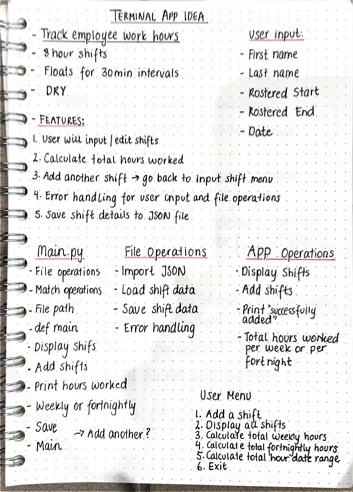 TERMINAL APP IDEA
- Track employee work hours
- 8 hour shifts
- Floats for 30min intervals
- DRY
User input:
- First name
- Last name
- Rostered Start
- Rostered End
- Date
- FEATURES:
1. User will input/edit shifts
2. Calculate total hours worked
3. Add another shift → go back to input shift menu
4. Error handling for user input and file operations
5. Save shift details to JSON file
Main.py
- File operations
- Match operations
- File path
- def main
- Display Shifs
- Add shifts
- Print hours worked
- Weekly or fortnightly
- Save
→ Add another?
- Main
File Operations
- Import JSON
- Load shift data
- Save shift data
- Error handling
APP Operations
- Display Shifts
- Add shifts
- Print "successfully
added"
- Total hours worked
per week or per
fortnight
User Menu
1. Add a shift
2. Display all shifts
3. Calculate total weekly hours
4. Calculate total fortnightly hours
5. Calculate total hour date range
6. Exit